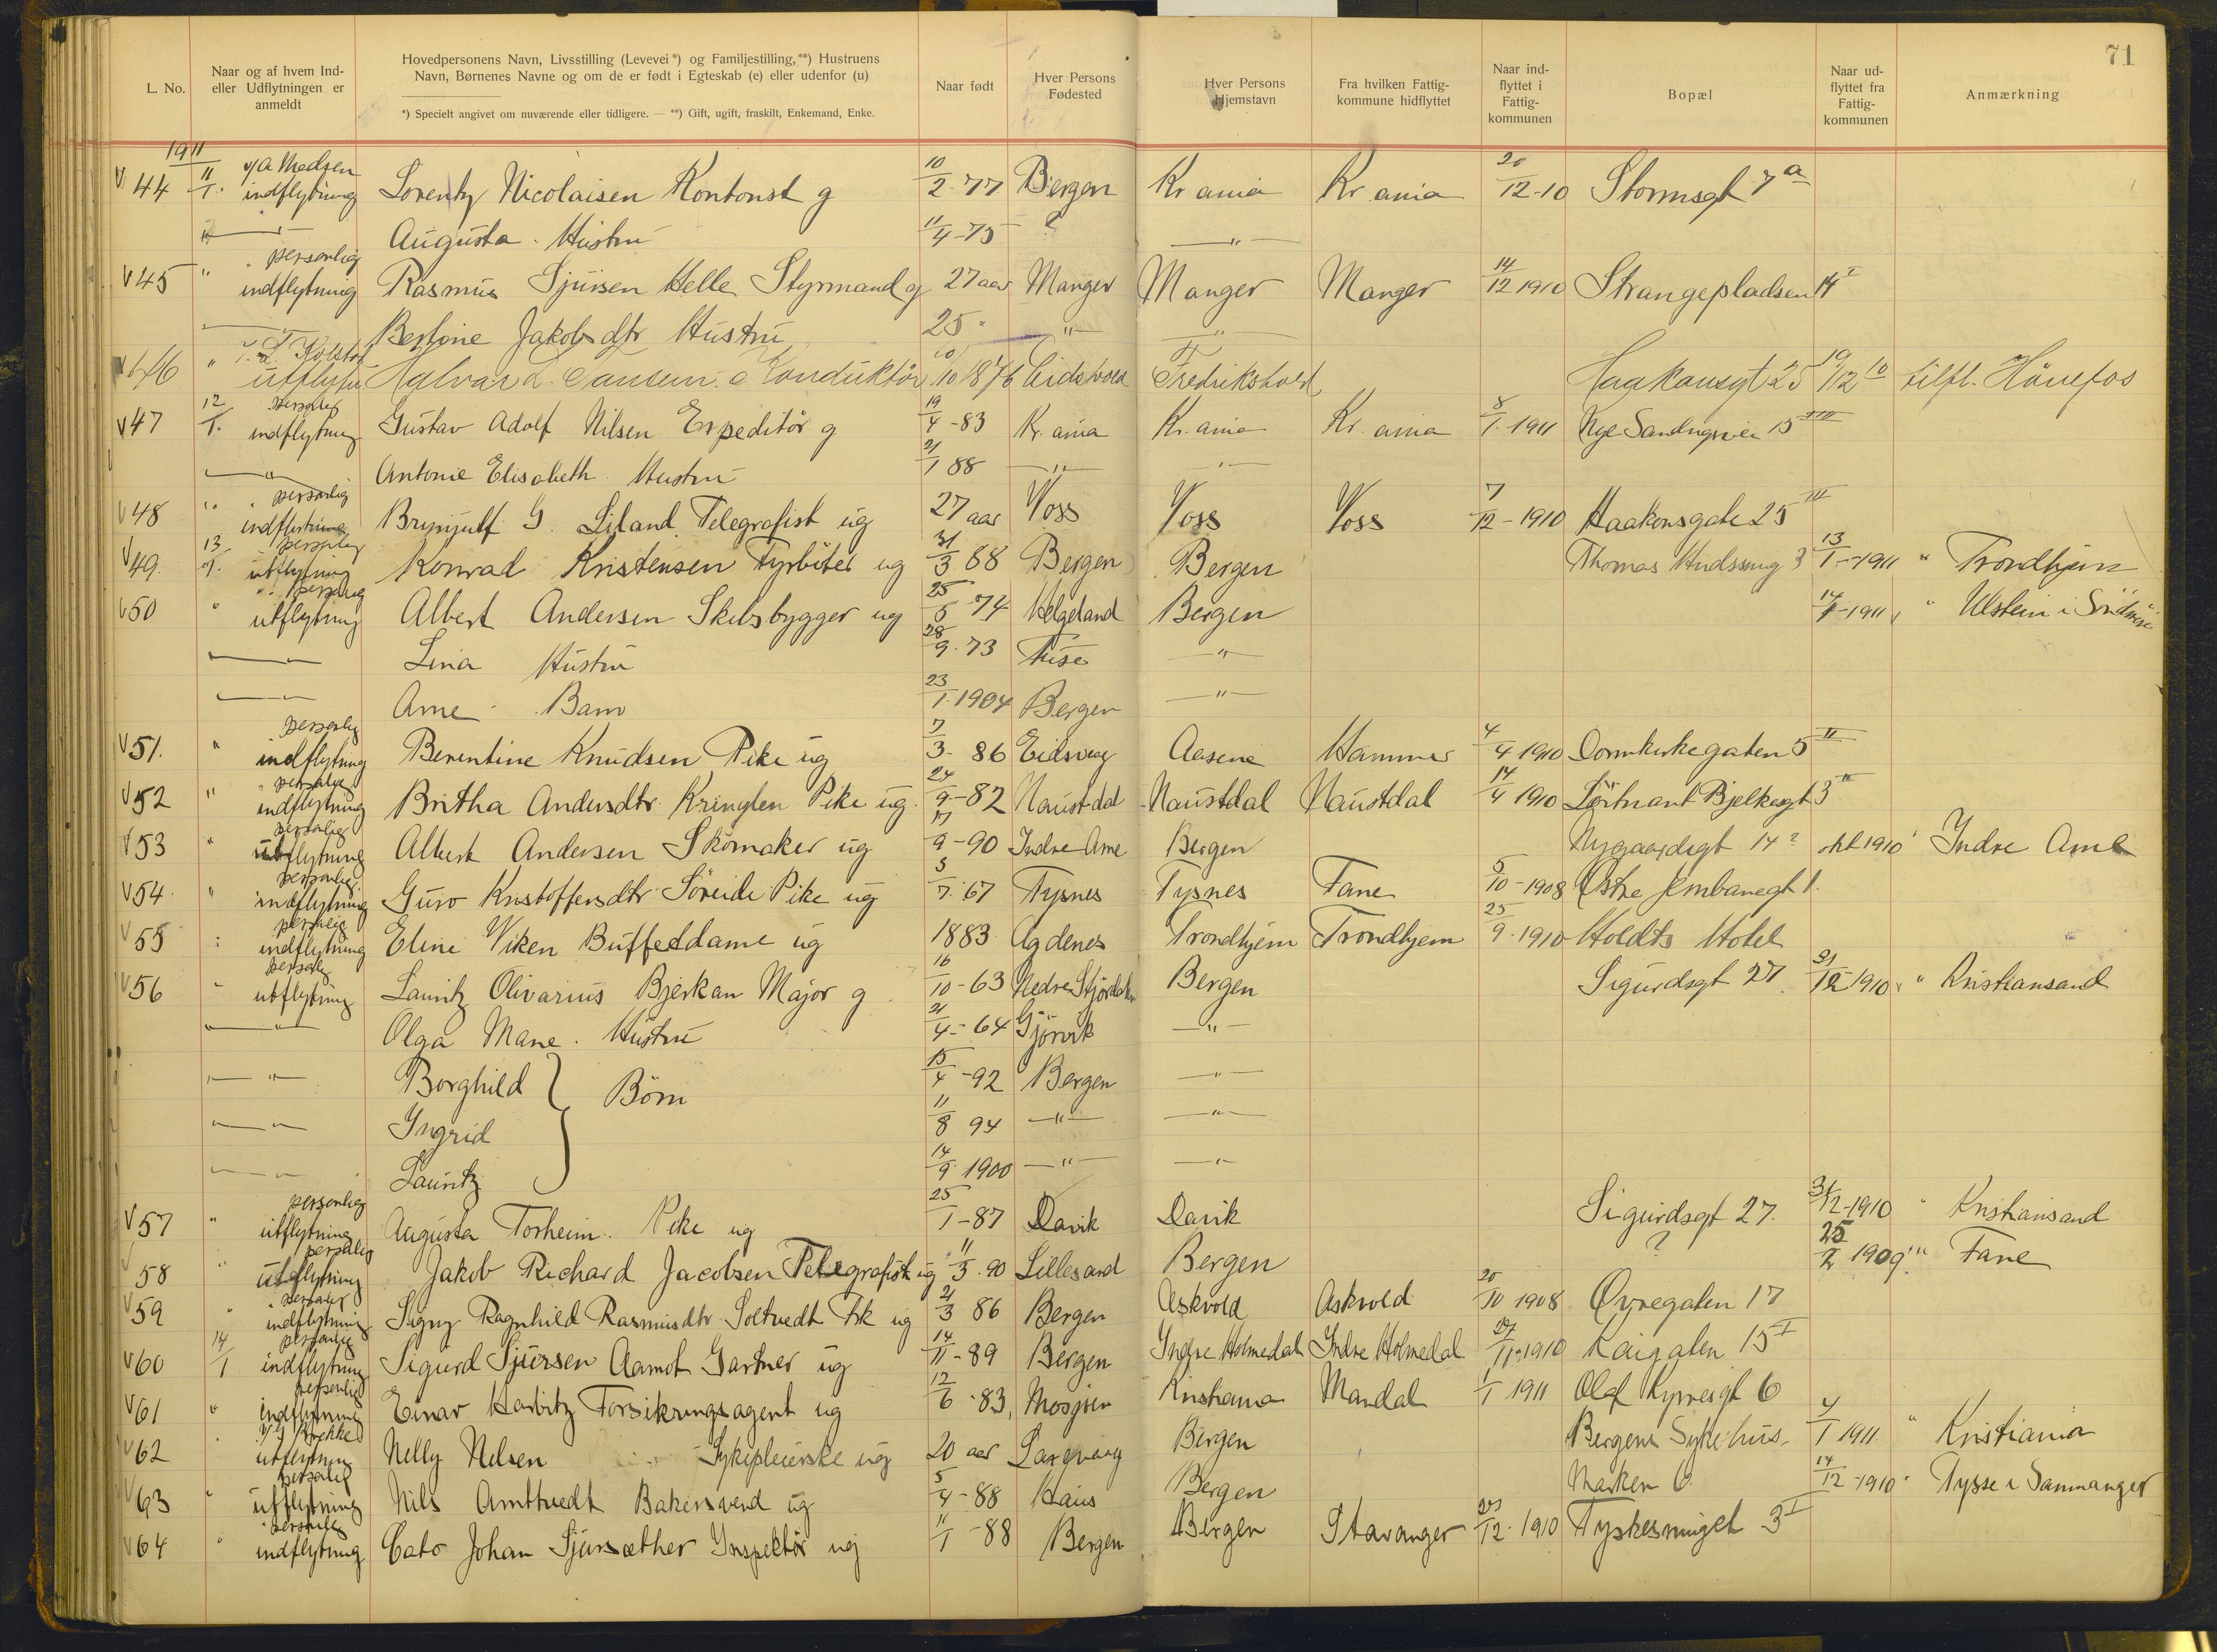 71
L. No.
Naar og af hvem Ind- eller Udflytningen er anmeldt
Hovedpersonens Navn, Livsstilling (Levevei*) og Familjestilling,**) Hustruens Navn, Børnenes Navne og om de er født i Egteskab (e) eller udenfor (u)
*) Specielt angivet om nuværende eller tidligere. — **) Gift, ugift, fraskilt, Enkemand, Enke.
Naar født
Hver Persons Fødested
Hver Persons Hjemstavn
Fra hvilken Fattigkommune hidflyttet
Naar indflyttet i Fattigkommunen
Bopæl
Naar udflyttet fra Fattigkommunen
Anmærkning
1911
v/ A Madsen
44 11/1. indflytning Lorentz Nicolaisen Kontorist g 10/2-77 Bergen Kr ania Kr. ania 20/12-10 Stormsgt 7a
—"— Augusta. Hustru 11/4-75 ? —"—
" personlig
45 " indflytning Rasmus Sjursen Helle Styrmand g 27 aar Manger Manger Manger 14/12 1910 Strangepladsen 14 I
— Bertine Jakobsdtr Hustru 25 " —"— —"—
46 " utflytn Halvar L. Jansen. Konduktör 10/10 1876 Eidsvold Fredrikshold Haakonsgt 25 19/12 10 tilfl. Hönefos
personlig
47 12/1. indflytning Gustav Adolf Nilsen Expeditör g 19/4-83 Kr. ania Kr. ania Kr. ania 8/1-1911 Nye Sandvigsvei 15 III
—"— Antonie Elisabeth Hustru 21/1 88 —"— —"—
" personlig
48 " indflytning Brynjulf G. Liland Telegrafist ug 27 aar Voss Voss Voss 7/12-1910 Haakonsgate 25 III
personlig
49. 13/1. utflytning Konrad Kristensen Fyrböter ug 31/3 88 Bergen Bergen 13/1-1911 " Trondhjem
" personlig
50 " utflytning Albert Andersen Skibsbygger ug 25/5 74 Helgeland Bergen 14/1-1911 " Ulstein i Söndmöre
—"— Lina Hustru 28/9-73 —"—
—"— Arne Barn 23/1-1904 Bergen —"—
personlig
51. " indflytning Berentine Knudsen Pike ug 7/3-86 Eidsvaag Aasene Hammer 4/4 1910 Domkirkegaten 5 II
" personlig
52 " indflytning Britha Andersdtr Kringlen Pike ug. 24/9-82 Naustdal Naustdal Naustdal 14/4 1910 Löitnant Bjelkesgt 3 II
personlig
53 " utflytning Albert Andersen Skomaker ug 17/9-90 Indre Arne Bergen Nygaardsgt 14? okt 1910 Indre Arne
personlig
54. " indflytning Guro Kristoffersdtr Söreide Pike ug 5/7-67 Tysnes Tysnes Fane 5/10-1908 Östre Jernbanegt 1.
personlig
55 " indflytning Eline Viken Buffetdame ug 1883 Agdenes Trondhjem Trondhjem 25/9-1910 Holdts Hotel
personlig
56 " utflytning Lauritz Olivarius Bjerkan Major g 16/10-63 Nedre Stjördalen Bergen Sigurdsgt 27. 31/12 1910 " Kristiansand
—"— Olga Marie. Hustru 21/4-64 Gjörvik —"—
—"— Borghild } Börn 15/4-92 Bergen —"—
—"— Ingrid 11/8 94 —"— —"—
—"— Lauritz 14/9 1900 —"— —"—
personlig
57 " utflytning Augusta Torheim. Pike ug 25/1-87 Davik Davik Sigurdsgt 27. 31/12-1910 " Kristiansand
personlig
58 " utflytning Jakob Richard Jacobsen Telegrafist ug 11/3-90 Lillesand Bergen ? 25/2 1909 " Fane
" personlig
59 " indflytning Signy Ragnhild Rasmusdtr Soltvedt Frk ug 21/3 86 Bergen Askvold Askvold 20/10 1908 Øvregaten 17
personlig
60 14/1 indflytning Sigurd Sjursen Aamot Gartner ug 14/11-89 Bergen Indre Holmedal Indre Holmedal Kaigaten 15 I
personlig
61 " indflytning Einar Harbitz Forsikringsagent ug 12/6-83, Mosjöen Kristiania Mandal 1/1 1911 Olaf Kyrresgt 6
v/ Brekke
62 " utflytning Nelly Nilsen Sykepleierske ug 20 aar Bergen Bergens Sykehus. 4/1 1911 " Kristiania
personlig
63 " utflytning Nils Amttvedt Bakersvend ug 5/4-88 Haus Bergen Marken 6 14/12-1910 " Tysse i Sammanger
" personlig
64 " indflytning Cato Johan Sjursæther Inspektör ug 11/1-88 Bergen Bergen Stavanger Tyskesmuget 3 I